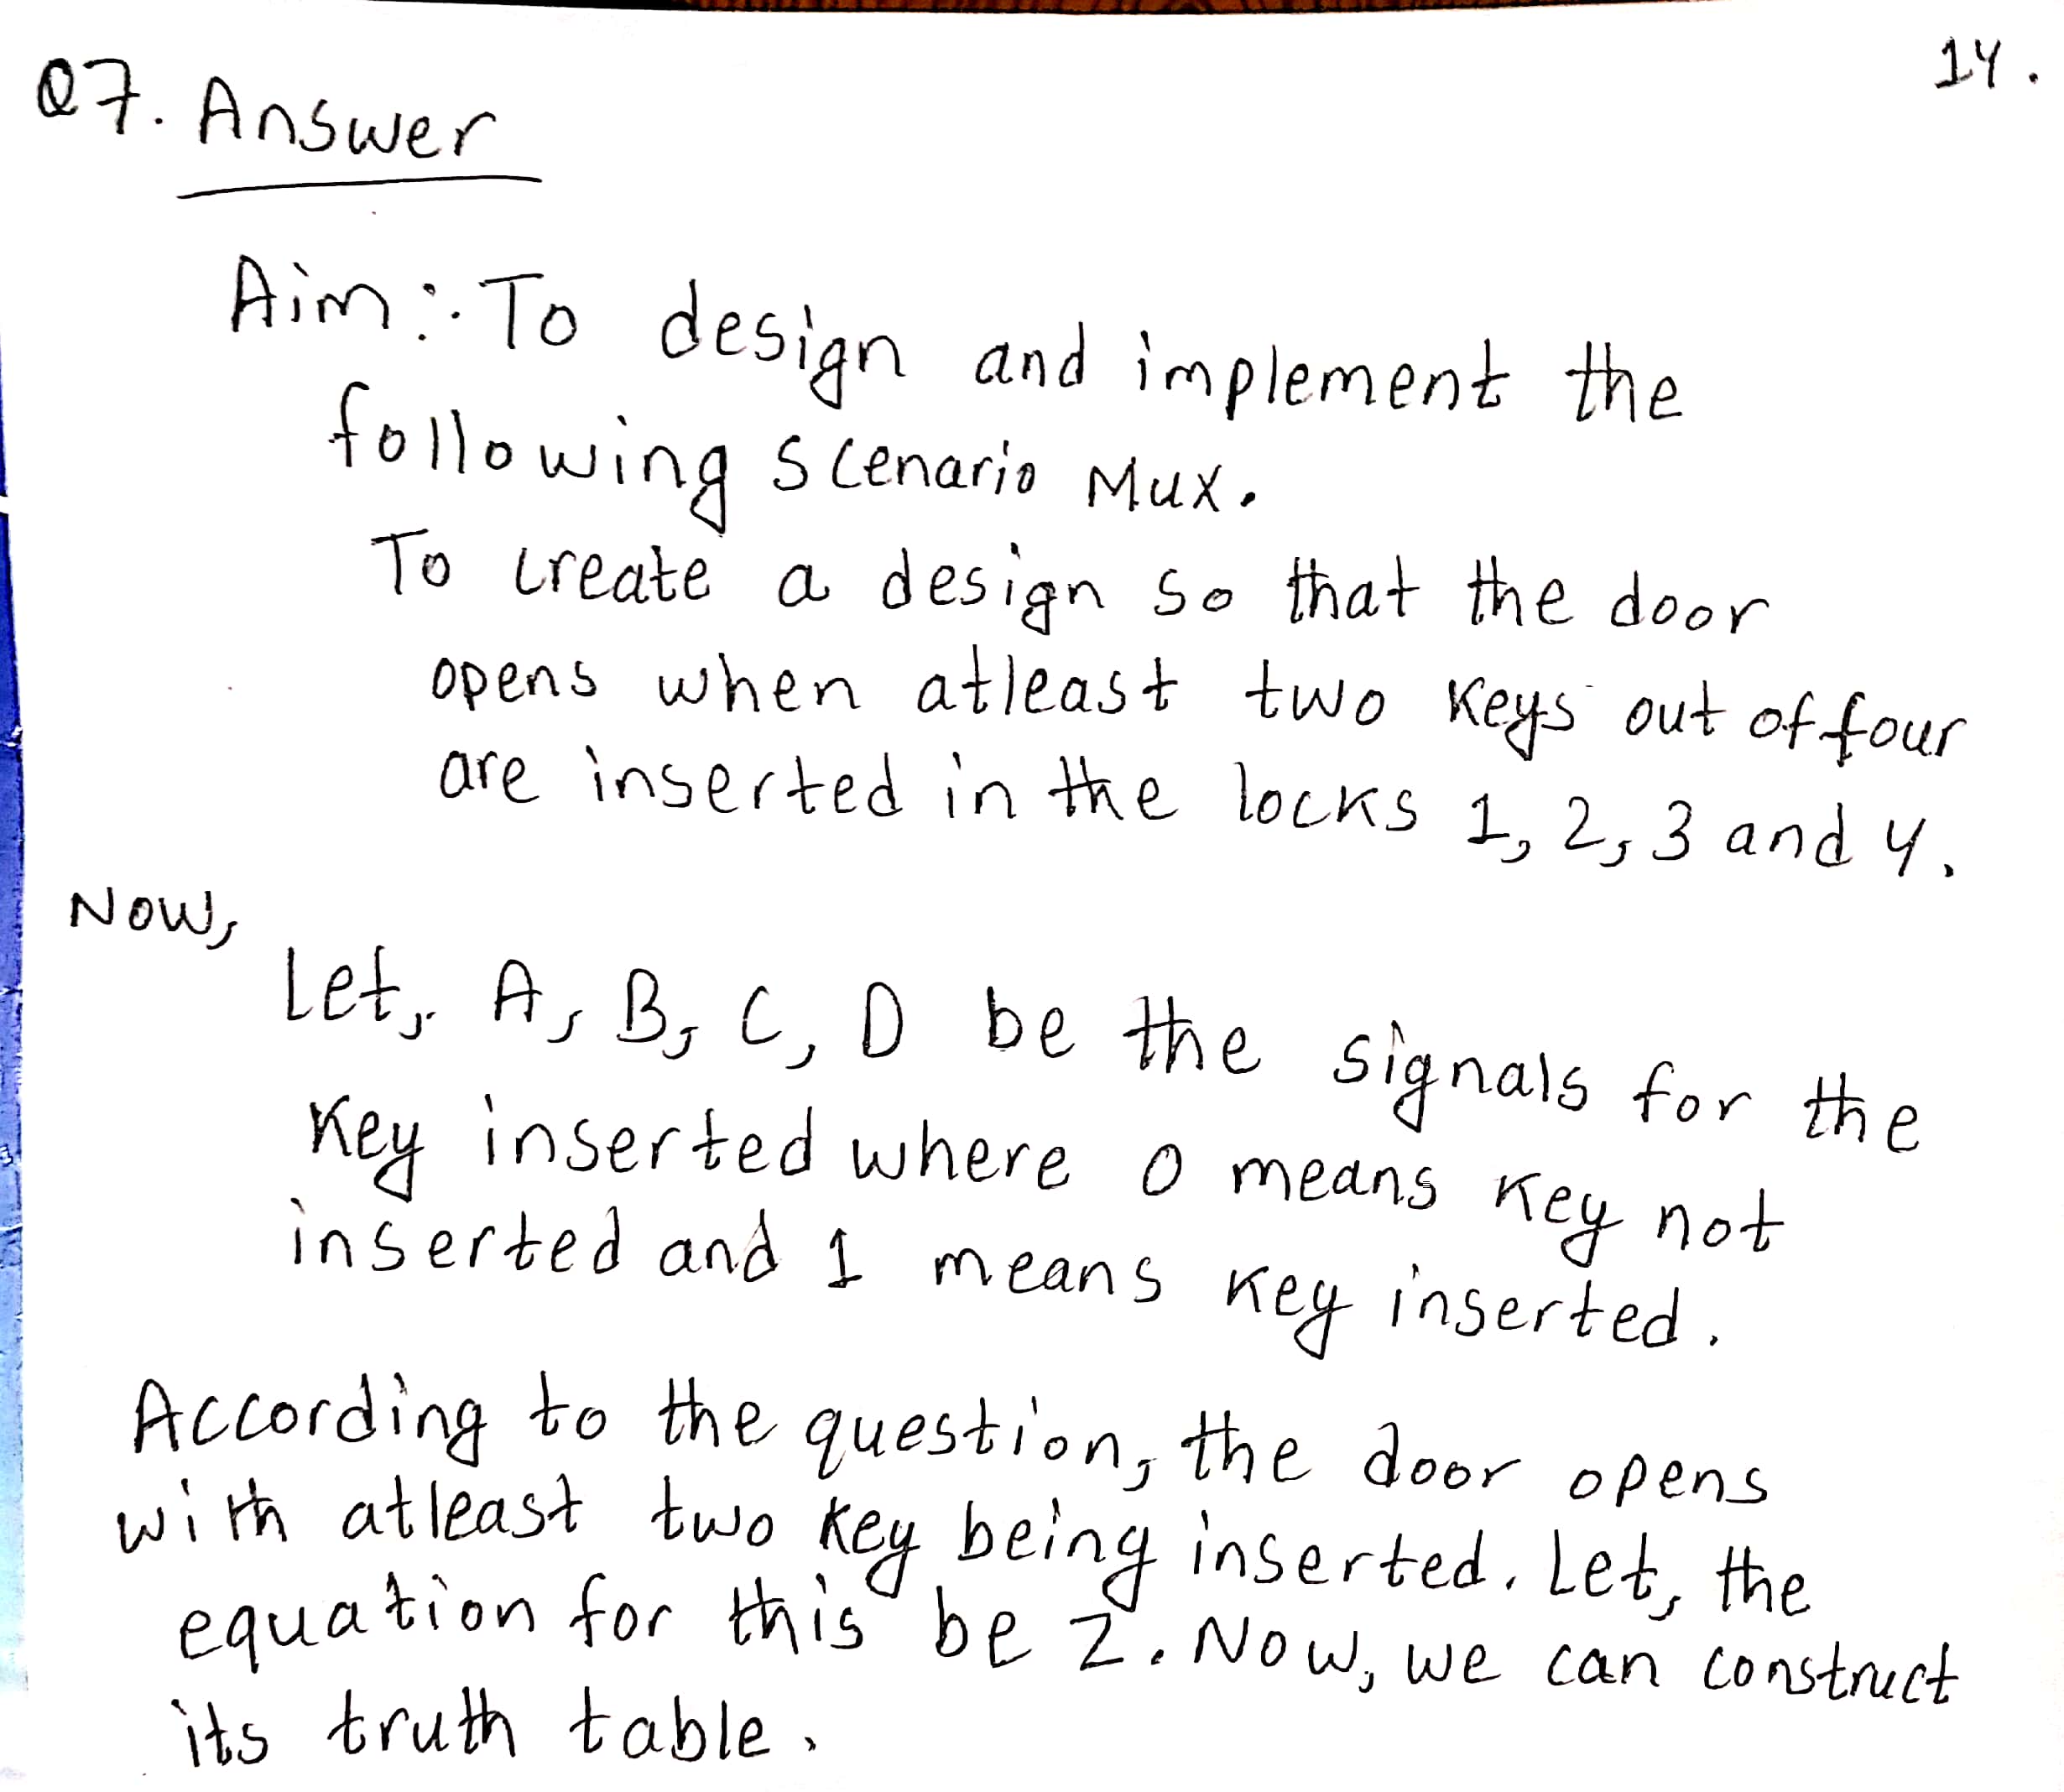 14.
Q7. Answer
Aim:. To design and implement the
following scenario Mux.
To create a design so that the door
opens when atleast two keys out of four
are inserted in the locks 1, 2, 3 and 4.
Now,
Let, A, B, C, D be the signals for the
key inserted where 0 means key not
inserted and 1 means key inserted.
According to the question, the door opens
with atleast two key being inserted. Let, the
equation for this be Z. Now, we can construct
its truth table.